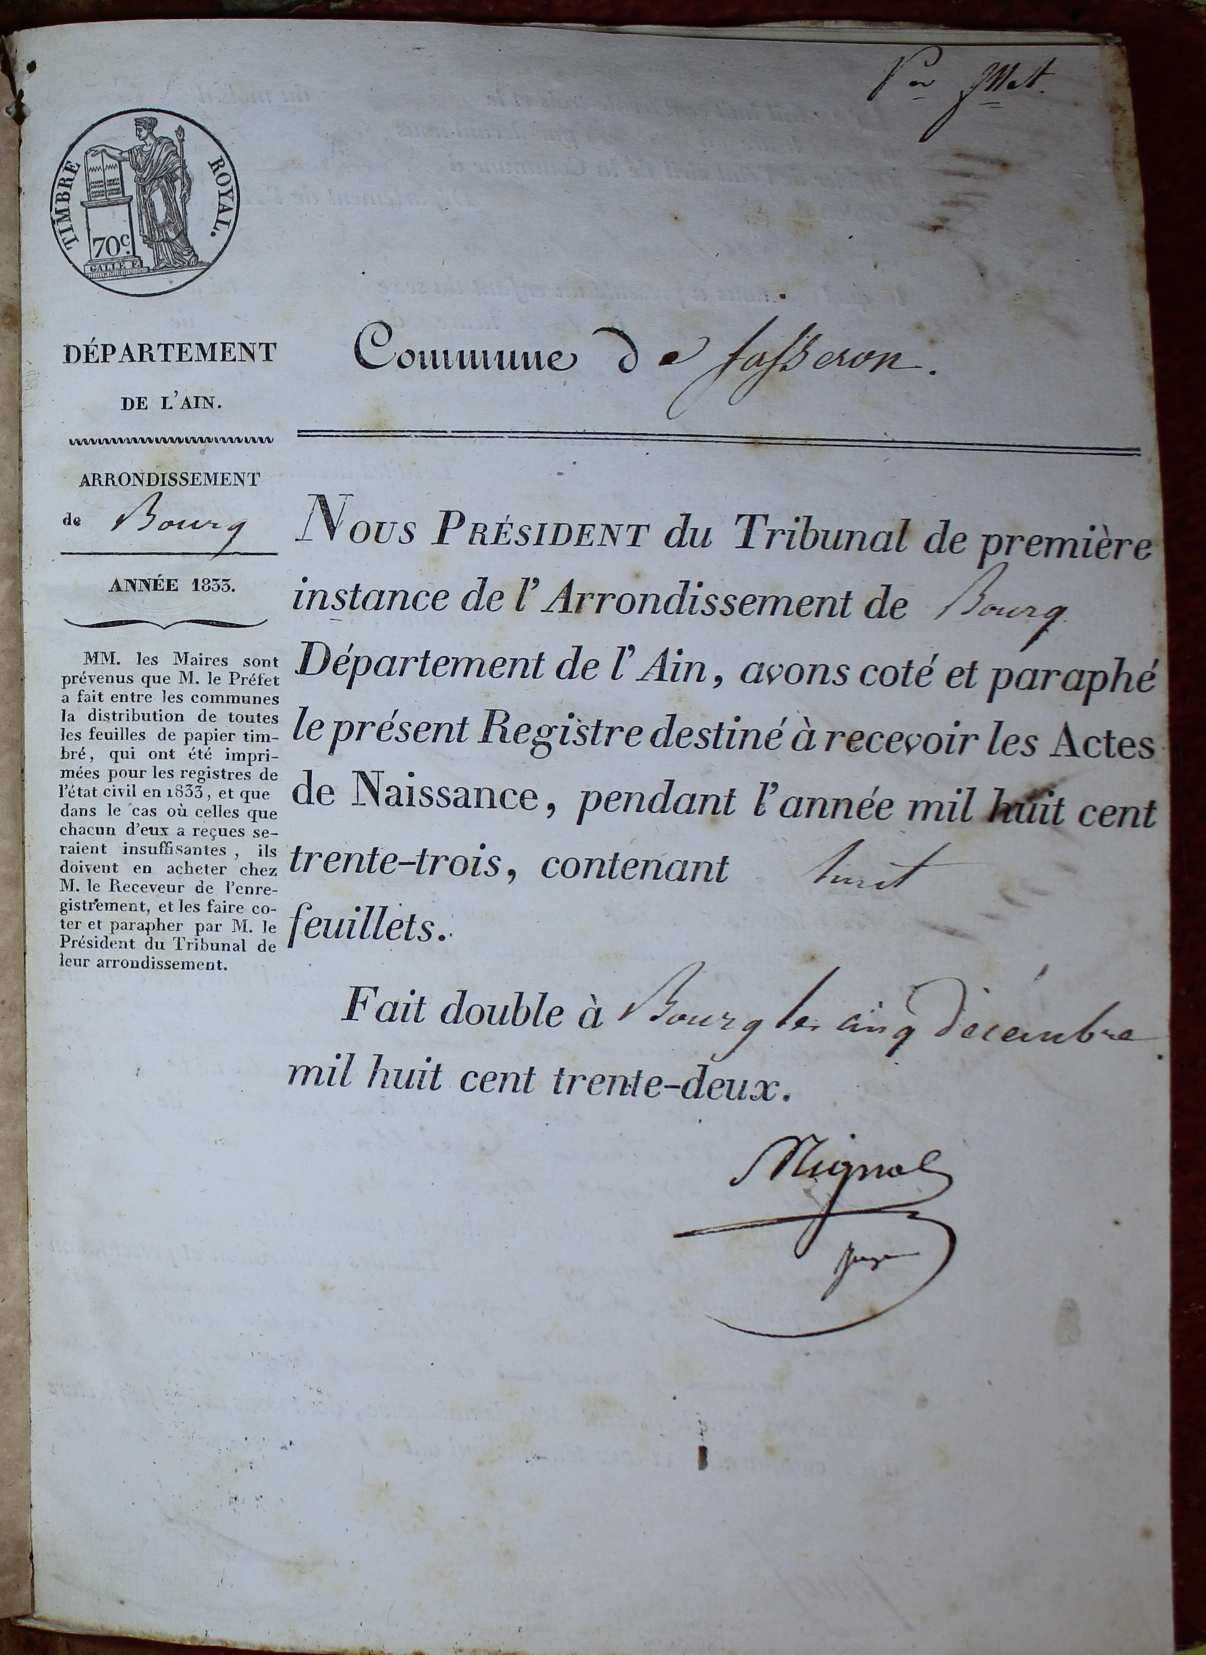 TIMBRE ROYAL.
70c.
DÉPARTEMENT
DE L'AIN.
ARRONDISSEMENT
de Bourg
ANNÉE 1833.
MM. les Maires sont
prévenus que M. le Préfet
a fait entre les communes
la distribution de toutes
les feuilles de papier tim-
bré, qui ont été impri-
mées pour les registres de
l'état civil en 1833, et que
dans le cas où celles que
chacun d'eux a reçues se-
raient insuffisantes, ils
doivent en acheter chez
M. le Receveur de l'enre-
gistrement, et les faire co-
ter et parapher par M. le
Président du Tribunal de
leur arrondissement.
Commune de Jasseron.
NOUS PRÉSIDENT du Tribunal de première
instance de l'Arrondissement de Bourg
Département de l'Ain, avons coté et paraphé
le présent Registre destiné à recevoir les Actes
de Naissance, pendant l'année mil huit cent
trente-trois, contenant huit
feuillets.
Fait double à Bourg le cinq décembre
mil huit cent trente-deux.